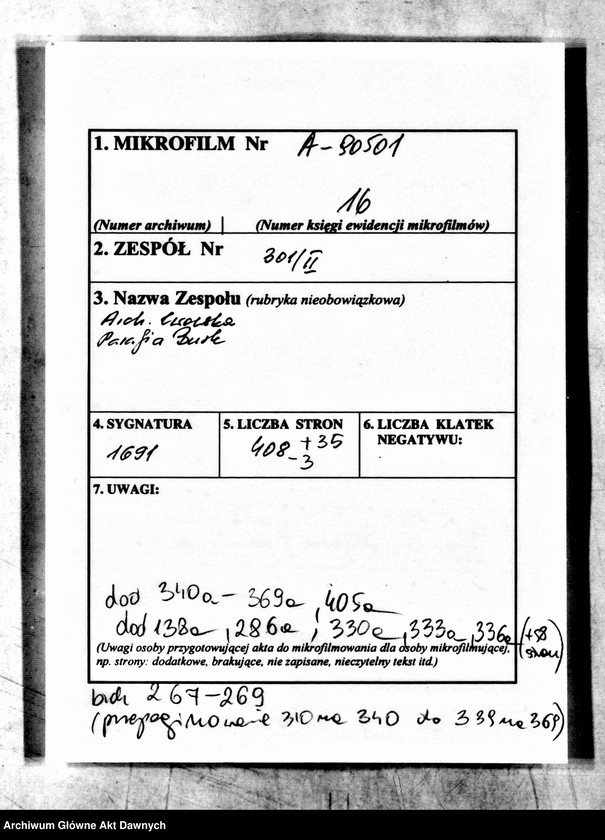 1. MIKROFILM Nr A-90501
16
(Numer archiwum) (Numer księgi ewidencji mikrofilmów)
2. ZESPÓŁ Nr 301/II
3. Nazwa Zespołu (rubryka nieobowiązkowa)
Arch. Lwowska
Parafia Busk
4. SYGNATURA 5. LICZBA STRON 6. LICZBA KLATEK
NEGATYWU:
1691 408 +35
-3
7. UWAGI:
dod 340a - 369a, 405a
dod 138a, 286a, 330a, 333a, 336a (+38
stron)
(Uwagi osoby przygotowującej akta do mikrofilmowania dla osoby mikrofilmującej,
np. strony: dodatkowe, brakujące, nie zapisane, nieczytelny tekst itd.)
brak 267-269
(przepaginowanie 310 na 340 do 339 na 369)
Archiwum Główne Akt Dawnych